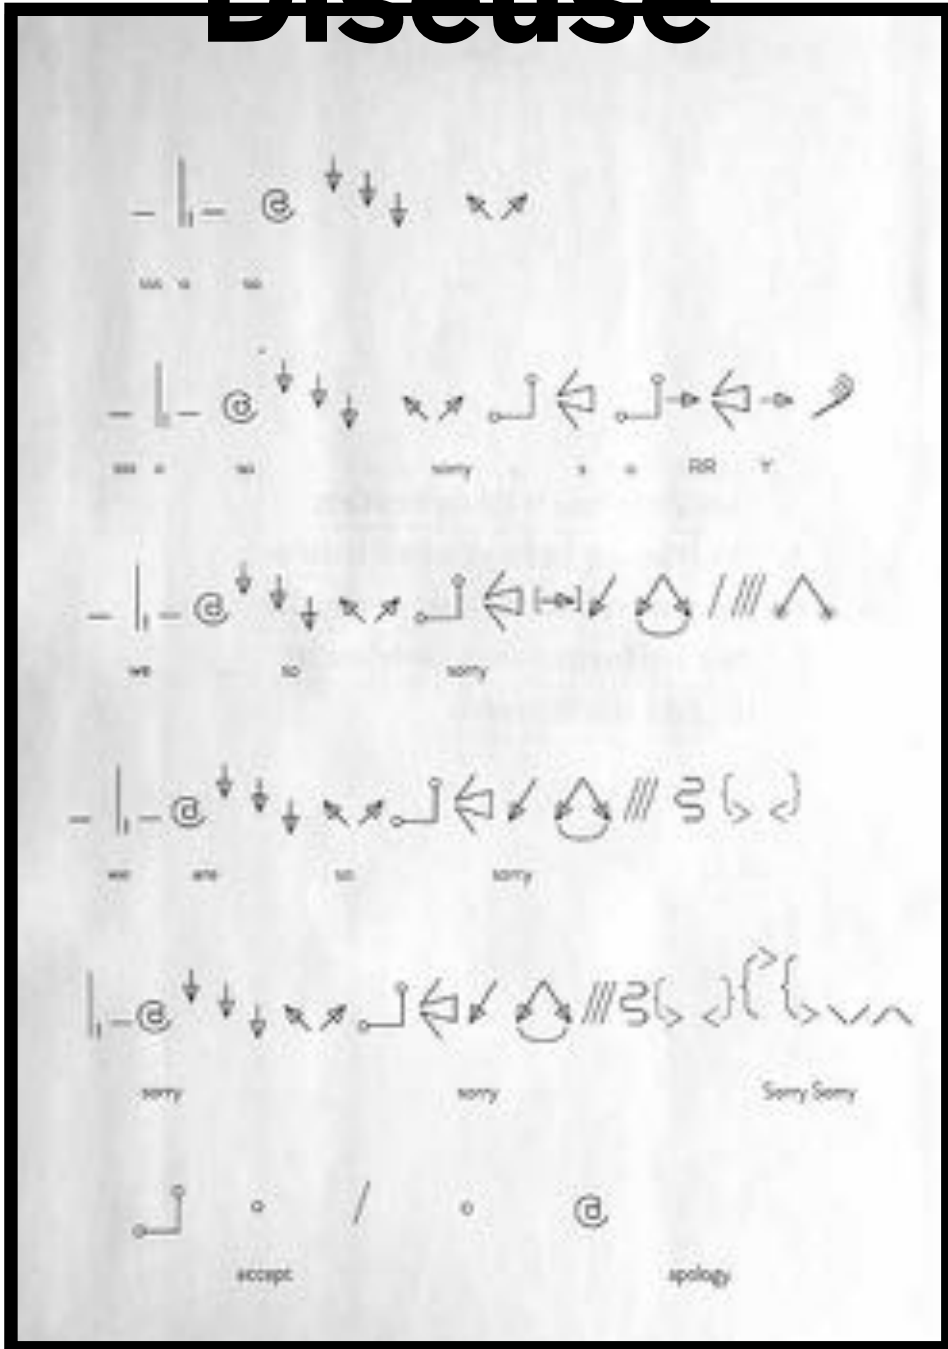 Disease
@
so
@
so sorry s o RR Y
@
we so sorry
@
we are so sorry
@
sorry sorry Sorry Sorry
/ @
accept apology